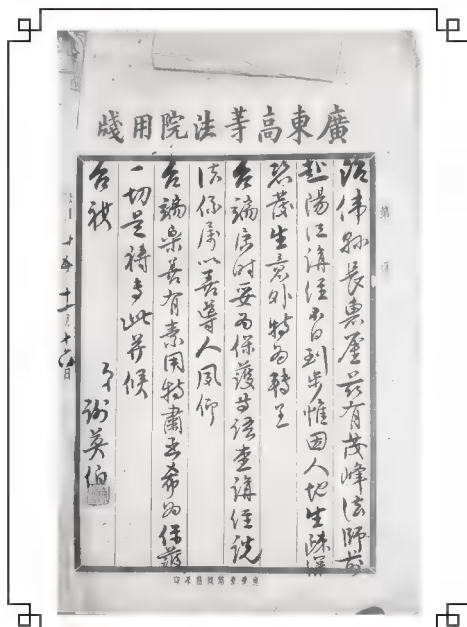 廣東高等法院用牋
鉻偉縣長惠鑒茲有茂峰法師前
赴陽江講經不日到步惟因人地生疎深
恐發生意外特為轉呈
台端屆時妥為保護等語查講經說
法係屬以善導人夙仰
台端樂善有素用特肅函希為保護
一切是禱專此并候
台祺
弟
謝英伯
十一月十六日